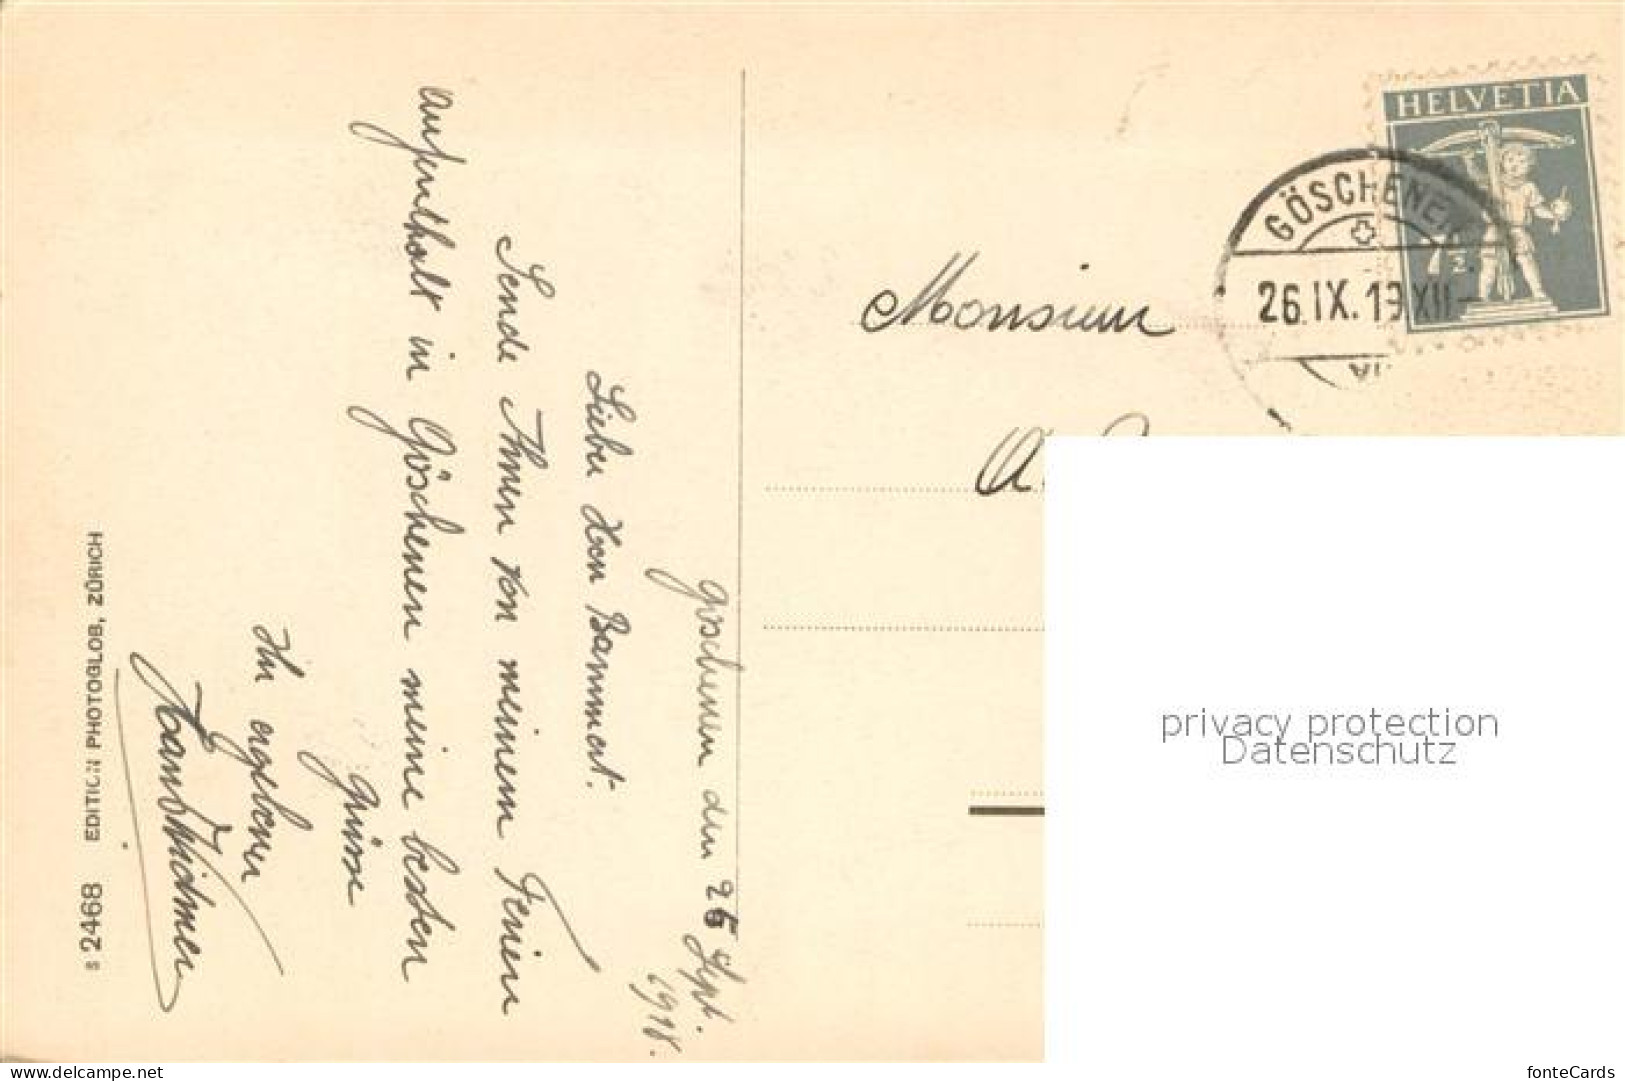 Göschenen den 26 Sept.
1918.
Lieber Herr Bammert.
Sende Ihnen von meinem Ferien
aufenthalt in Göschenen meine besten
Grüsse
Ihr ergebener
Hans Widmer
S 2468 EDITION PHOTOGLOB, ZÜRICH
HELVETIA
7½
GÖSCHENEN
26.IX.19 XII-
Monsieur
A.
privacy protection
Datenschutz
www.delcampe.net
fonteCards